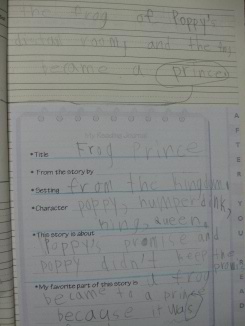 the frog of Poppy's
room, and the
became a prince
My favorite
• Title Frog Prince
• From the story by
• Setting from the kingdom
• Character poppy, humperdink,
king, queen,
• This story is about
Poppy's promise and
poppy didn't keep the
• My favorite part of this story is frog
became to a prince
because it was
AFTER YOU